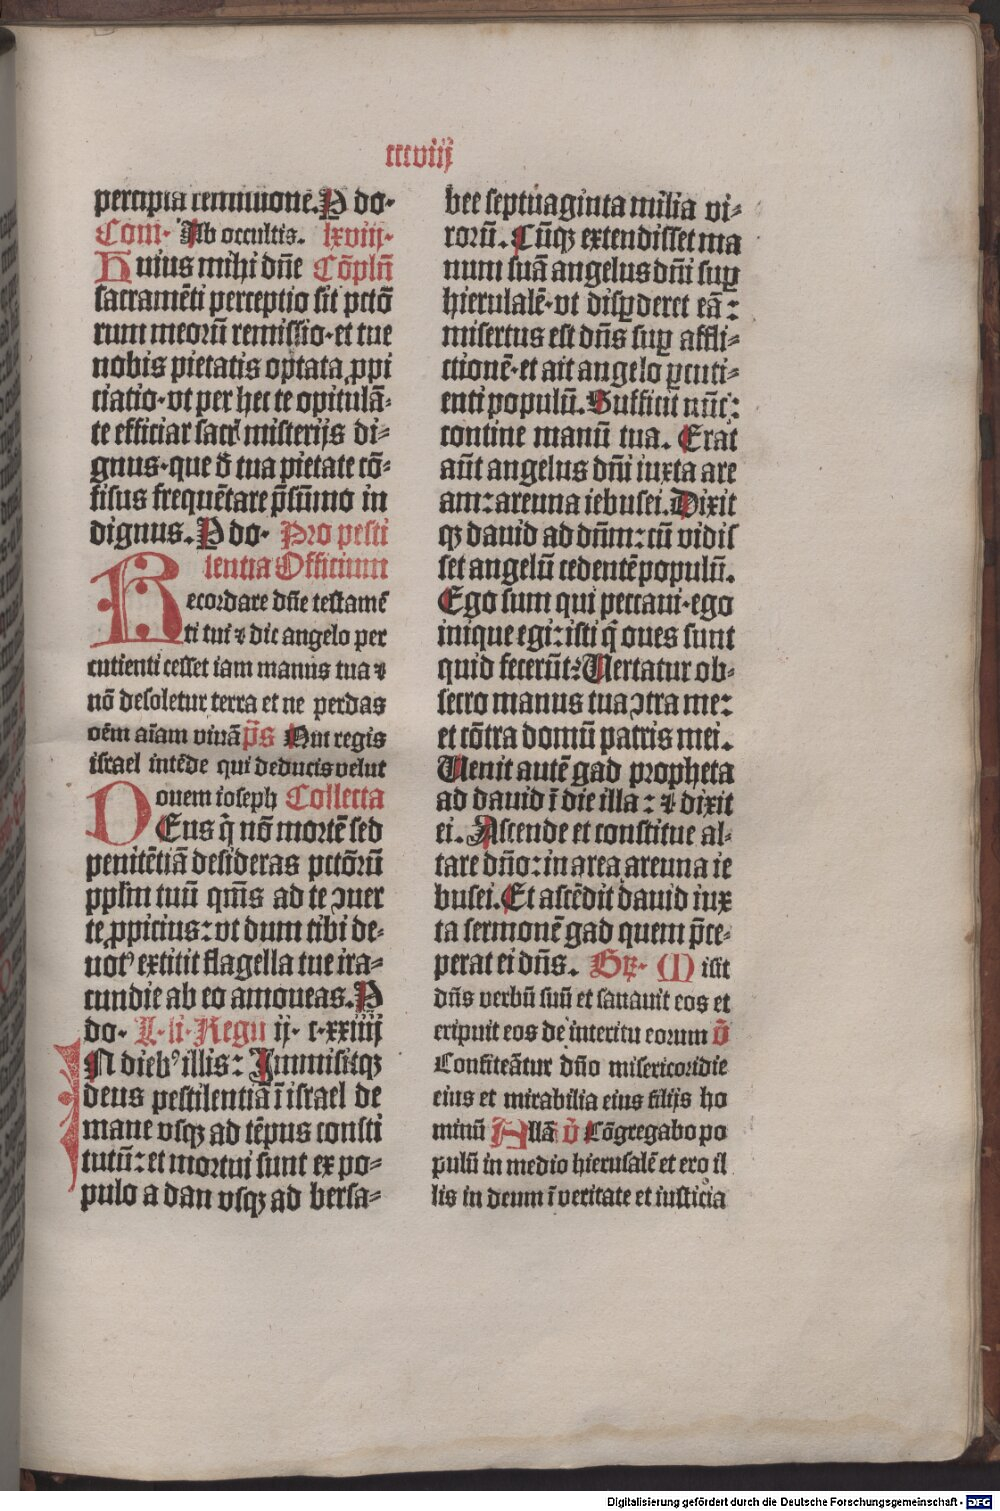 cccviij
percipia remissionē. P do-
Com- Ab occultis. lxviij-
Huius mihi dn̄e Cōpln̄
sacramēti perceptio sit pctō
rum meorū remissio·et tue
nobis pietatis optata ꝓpi
ciatio·vt per hec te opitulā⸗
te efficiar sacr̄ misterijs di⸗
gnus·que d̄ tua pietate cō⸗
fisus frequētare p̄sūmo in
dignus. P do· Pro pesti
lentia Officium
Recordare dn̄e testamē
ti tui ⁊ dic angelo per
cutienti cesset iam manus tua ⁊
nō desoletur terra et ne perdas
oēm aīam viuā p̄s Qui regis
israel intēde qui deducis velut
ouem ioseph Collecta
DEus q̄ nō mortē sed
penitētiā desideras pctōrū
pplm̄ tuū qm̄s ad te ꝯuer
te ꝓpicius: vt dum tibi de⸗
uotꝰ extitit flagella tue ira⸗
cundie ab eo amoueas. P
do· L· li· Regū ij· c·xxiiij
IN diebꝰ illis: Immisitqꝫ
deus pestilentiā ī israel de
mane vsqꝫ ad tēpus consti
tutū: et mortui sunt ex po⸗
pulo a dan vsqꝫ ad bersa⸗
bee septuaginta milia vi⸗
rorū. Cūqꝫ extendisset ma
num suā angelus dn̄i suꝑ
hierusalē·vt disꝑderet eā:
misertus est dn̄s suꝑ affli⸗
ctionē·et ait angelo ꝑcuti⸗
enti populū. Sufficit nūc:
contine manū tua. Erat
aūt angelus dn̄i iuxta are
am: areuna iebusei. Dixit
qꝫ dauid ad dn̄m: cū vidis
set angelū cedentē populū.
Ego sum qui peccaui·ego
inique egi: isti q̄ oues sunt
quid fecerūt: Uertatur ob⸗
secro manus tua ꝯtra me:
et cōtra domū patris mei.
Uenit autē gad propheta
ad dauid ī die illa: ⁊ dixit
ei. Ascende et constitue al⸗
tare dn̄o: in area areuna ie
busei. Et ascēdit dauid iux
ta sermonē gad quem p̄ce⸗
perat ei dn̄s. Gr̄· Misit
dn̄s verbū suū et sanauit eos et
eripuit eos de interitu eorum v̄
Confiteātur dn̄o misericordie
eius et mirabilia eius filijs ho
minū Allā v̄ Cōgregabo po
pulū in medio hierusalē et ero il
lis in deum ī veritate et iusticia
Digitalisierung gefördert durch die Deutsche Forschungsgemeinschaft - DFG